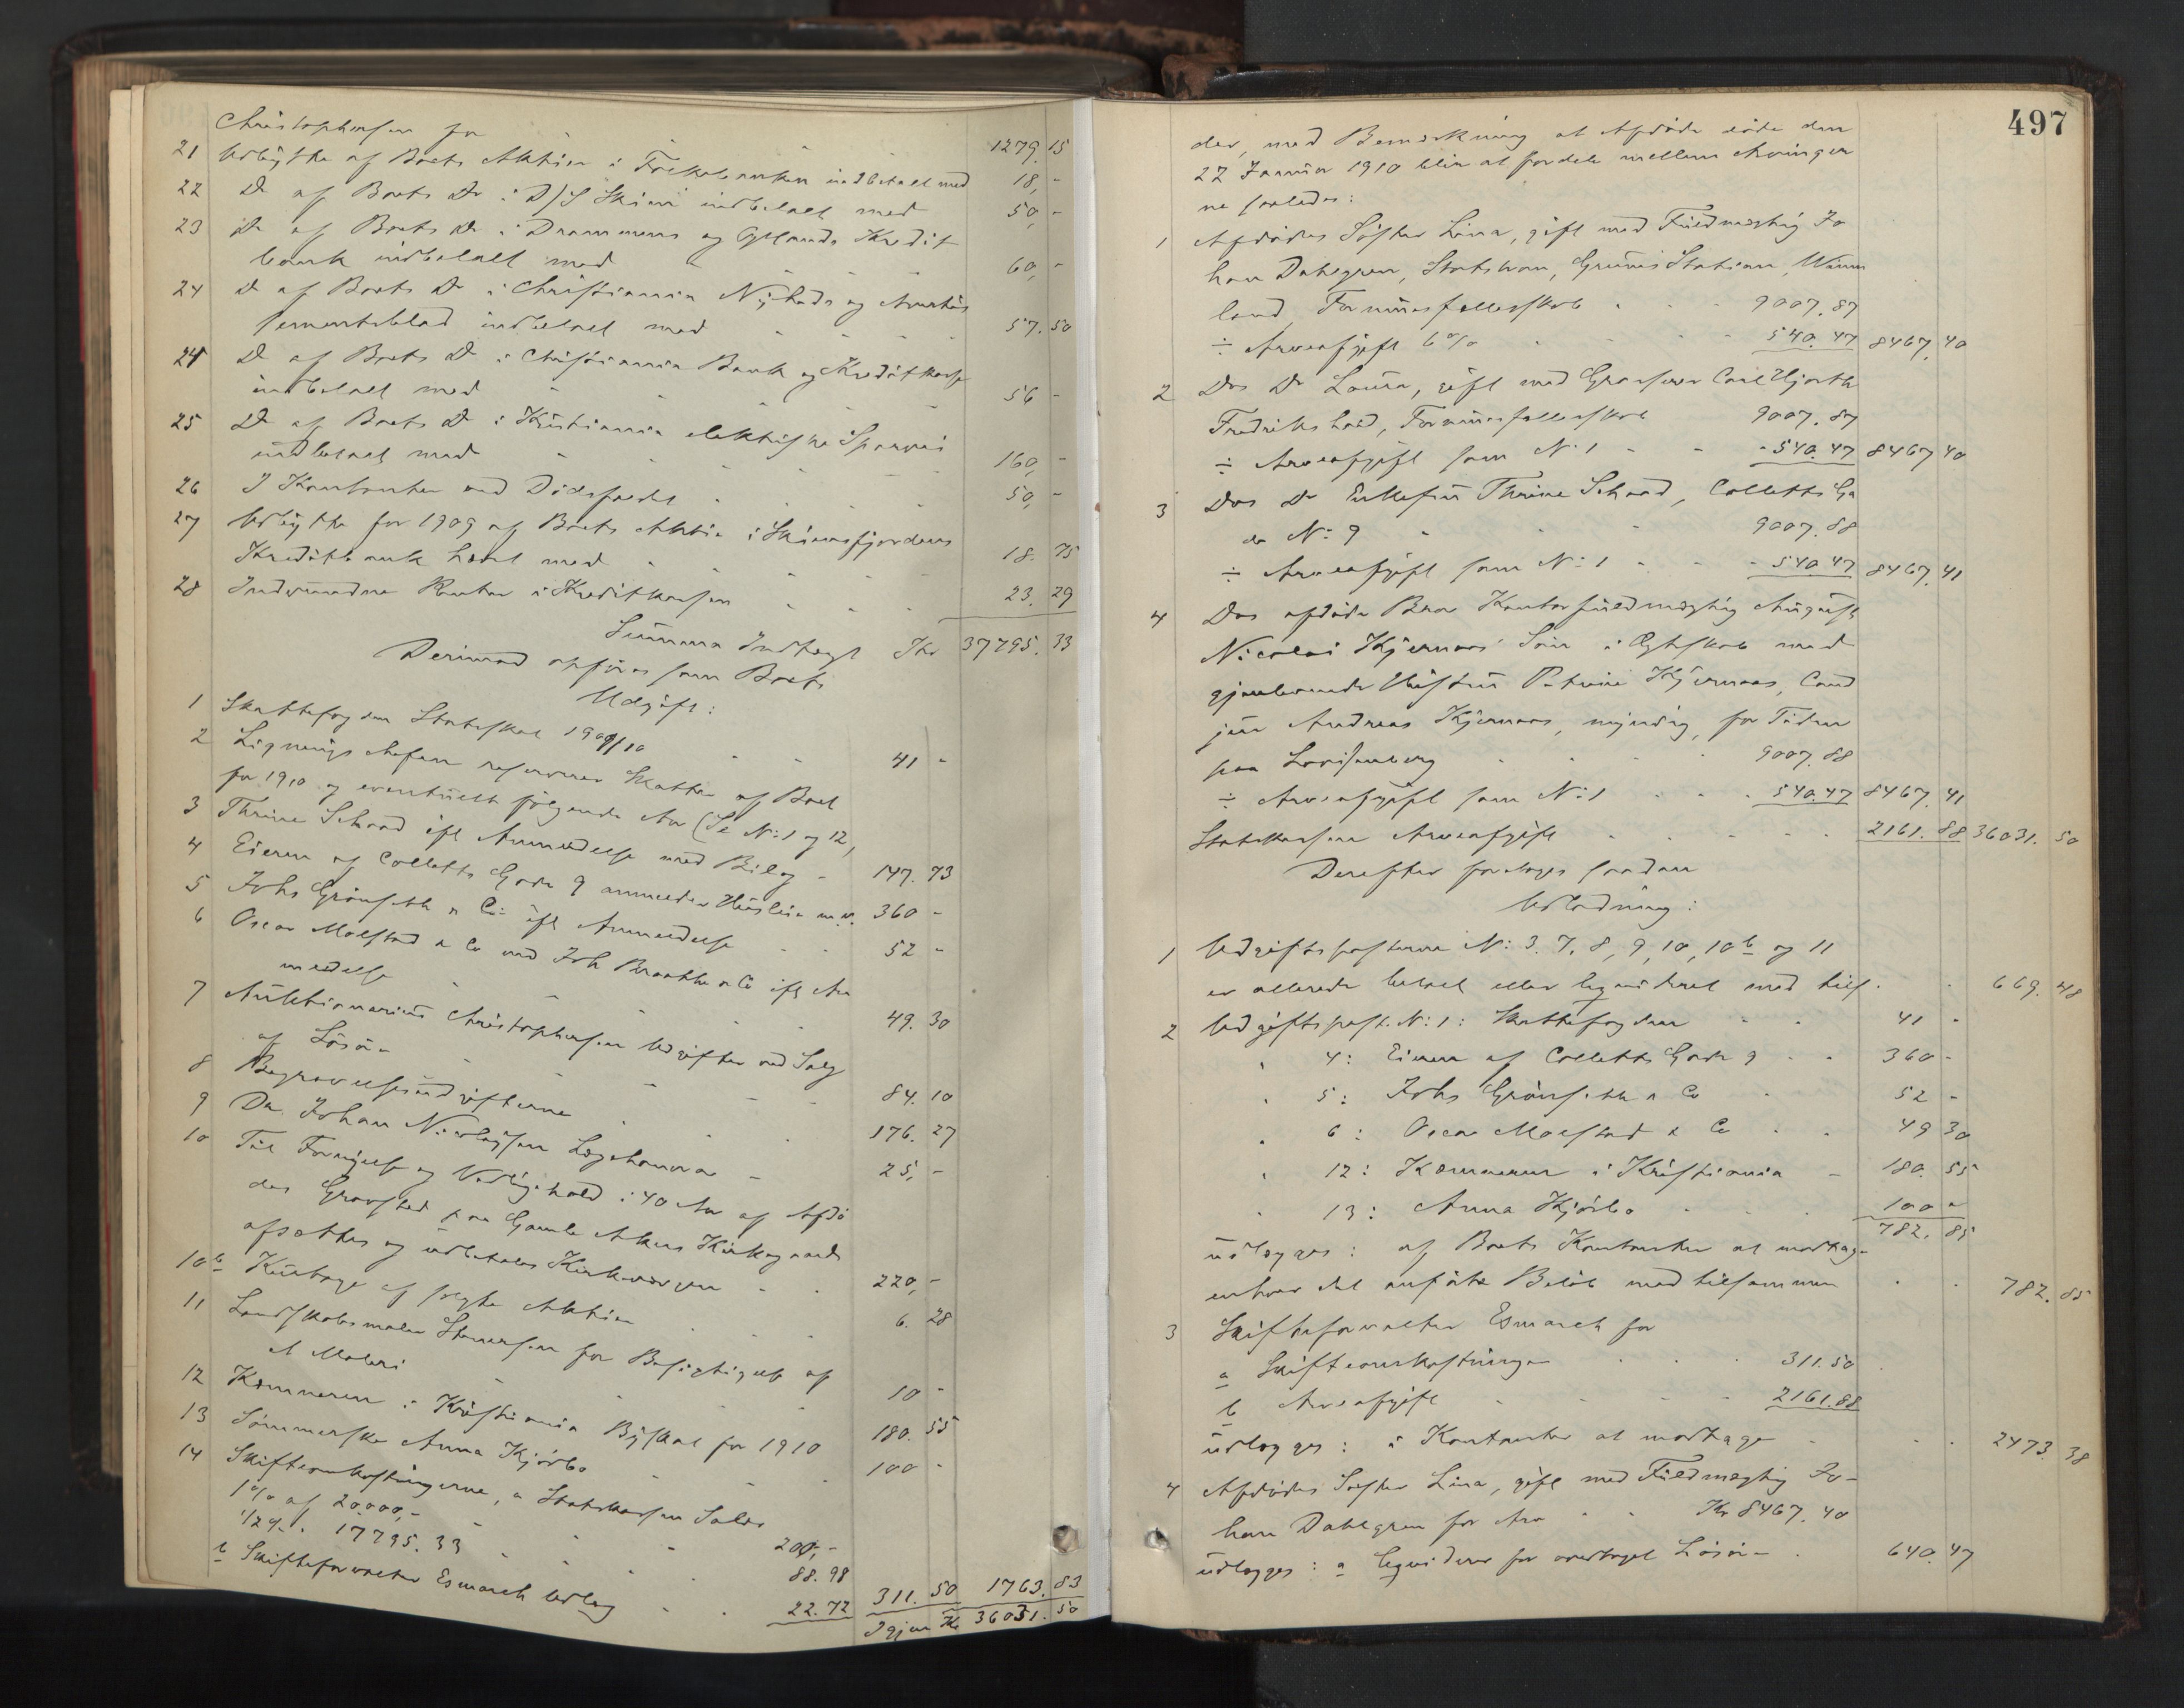 Christophersen for 1279.15
21 Udbytte af Boets Aktier i Folkebanken indbetalt med 18,-
22 Do af Boets Do i D/S Skiens indbetalt med 50,-
23 Do af Boets Do i Drammens og Oplands Kredit
bank indbetalt med - - - 60,-
24 Do af Boets Do i Christiania Nyheds og Avertis
sementsblad indbetalt med - - - 57.50
24 Do af Boets Do i Christiania Bank og Kreditkasse
indbetalt med - - - 56 -
25 Do af Boets Do i Kristiania elektriske Sporvei
indbetalt med - - - 160,-
26 I Kontanter ved Dødsfaldet - - 50,-
27 Udbytte for 1909 af Boets Aktie i Skiensfjordens
Kreditbank hævet med - - - 18.75
28 Indvundne Renter i Kreditkassen - - - 23.29
Summa Indtægt Kr 37795.33
Derimod opføres som Boets
Udgift:
1 Skattefogden Statsskat 1909/10 - - 41 -
2 Ligningschefen reserverer Skatter af Boet
for 1910 og eventuelt følgende Aar (Se N: 1 og 12,
3 Thrine Schaad ifl Anmeldelse med Bilag - 147.73
4 Eieren af Colletts Gade 9 anmelder Husleie m.v. 360 -
5 Johs Grönseth & Co: ifl Anmeldelse - - 52 -
6 Oscar Moestad & Co ved Joh Braathe & Co ifl An
meldelse - - - 49.30
7 Auktionarius Christophersen Udgifter ved Salg
af Løsøre - - - 84.10
8 Begravelsesudgifterne - - - 176.27
9 Dr. Johan Nicolaysen Lægehonorar - 25,-
10 Til Fornyelse og Vedligehold i 40 Aar af Afdø
des Gravsted paa Gamle Akers Kirkegaard
afsættes og udbetales Kirkeværgen - - 220,-
10b Kurtage af solgte Aktier - - - 6.28
11 Landskabsmaler for Besigtigelse af
et Maleri - - - 10 -
12 Kæmneren i Kristiania Byskat for 1910 180.55
13 Sömmerske Anna Kjörbo - - - 100 -
14 Skifteomkostningerne, a Statskassen Salær
1% af 20.000,- - - - 200,-
1/2% - 17795.33 - - - 88.98
b Skifteforvalter Esmarch Udlæg - - 22.72 311.50 1763.83
Igjen Kr 36031.50
497
der, med Bemærkning at Afdøde døde den
27 Januar 1910 blir at fordele mellem Arvinger
ne saaledes:
1 Afdødes Søster Lina, gift med Fuldmægtig Jo
han Dahlgren, Grums Station, Wärm
land, Formuesfællesskab - - 9007.87
÷ Arveafgift 6% - - - 540.47 8467.40
2 Des Do Laura, gift med Grosserer Carl Hjorth
Fredrikshald, Formuesfællesskab 9007.87
÷ Arveafgift som N: 1 - - - 540.47 8467 40
3 Des Do Enkefru Thrine Schaad, Colletts Ga
de N: 9 - - - 9007.88
÷ Arveafgift som N: 1 - - - 540.47 8467.41
4 Des afdøde Bror Kontorfuldmægtig August
Nicolai Kjernaas' Søn i Ægteskab med
gjenlevende Hustru Petrine Kjernaas, Cand
jur Andreas Kjernaas, myndig, for Tiden
paa Lovisenberg - - - 9007.88
÷ Arveafgift som N: 1 - - - 540.47 8467.41
Statskassen Arveafgift - - - 2161.88 36031.50
Derefter foretages saadan
Udlodning:
1 Udgiftsposterne N: 3. 7, 8, 9, 10, 10b og 11
er allerede betalt eller liquideret med tils. - 669.48
2 Udgiftspost. N: 1: Skattefogden - - 41 -
" 4: Eieren af Colletts Gade 9 - - 360 -
" 5: Johs Grönseth & Co - 52 -
" 6: Oscar Moestad & Co - - 49 30
" 12: Kæmneren i Kristiania - 180.55
" 13: Anna Kjörbo - - - 100 -
782.85
udlægges: af Boets Kontanter at modtage
enhver det anførte Beløb med tilsammen - - 782.85
3 Skifteforvalter Esmarch for
a Skifteomkostninger - - - 311.50
b Arveafgift - - - 2161.88
udlægges: i Kontanter at modtage - - - 2473.38
4 Afdødes Søster Lina, gift med Fuldmægtig Jo-
han Dahlgren for Arv - - Kr 8467.40
udlægges: a liquiderer for overtaget Løsøre - 640.47